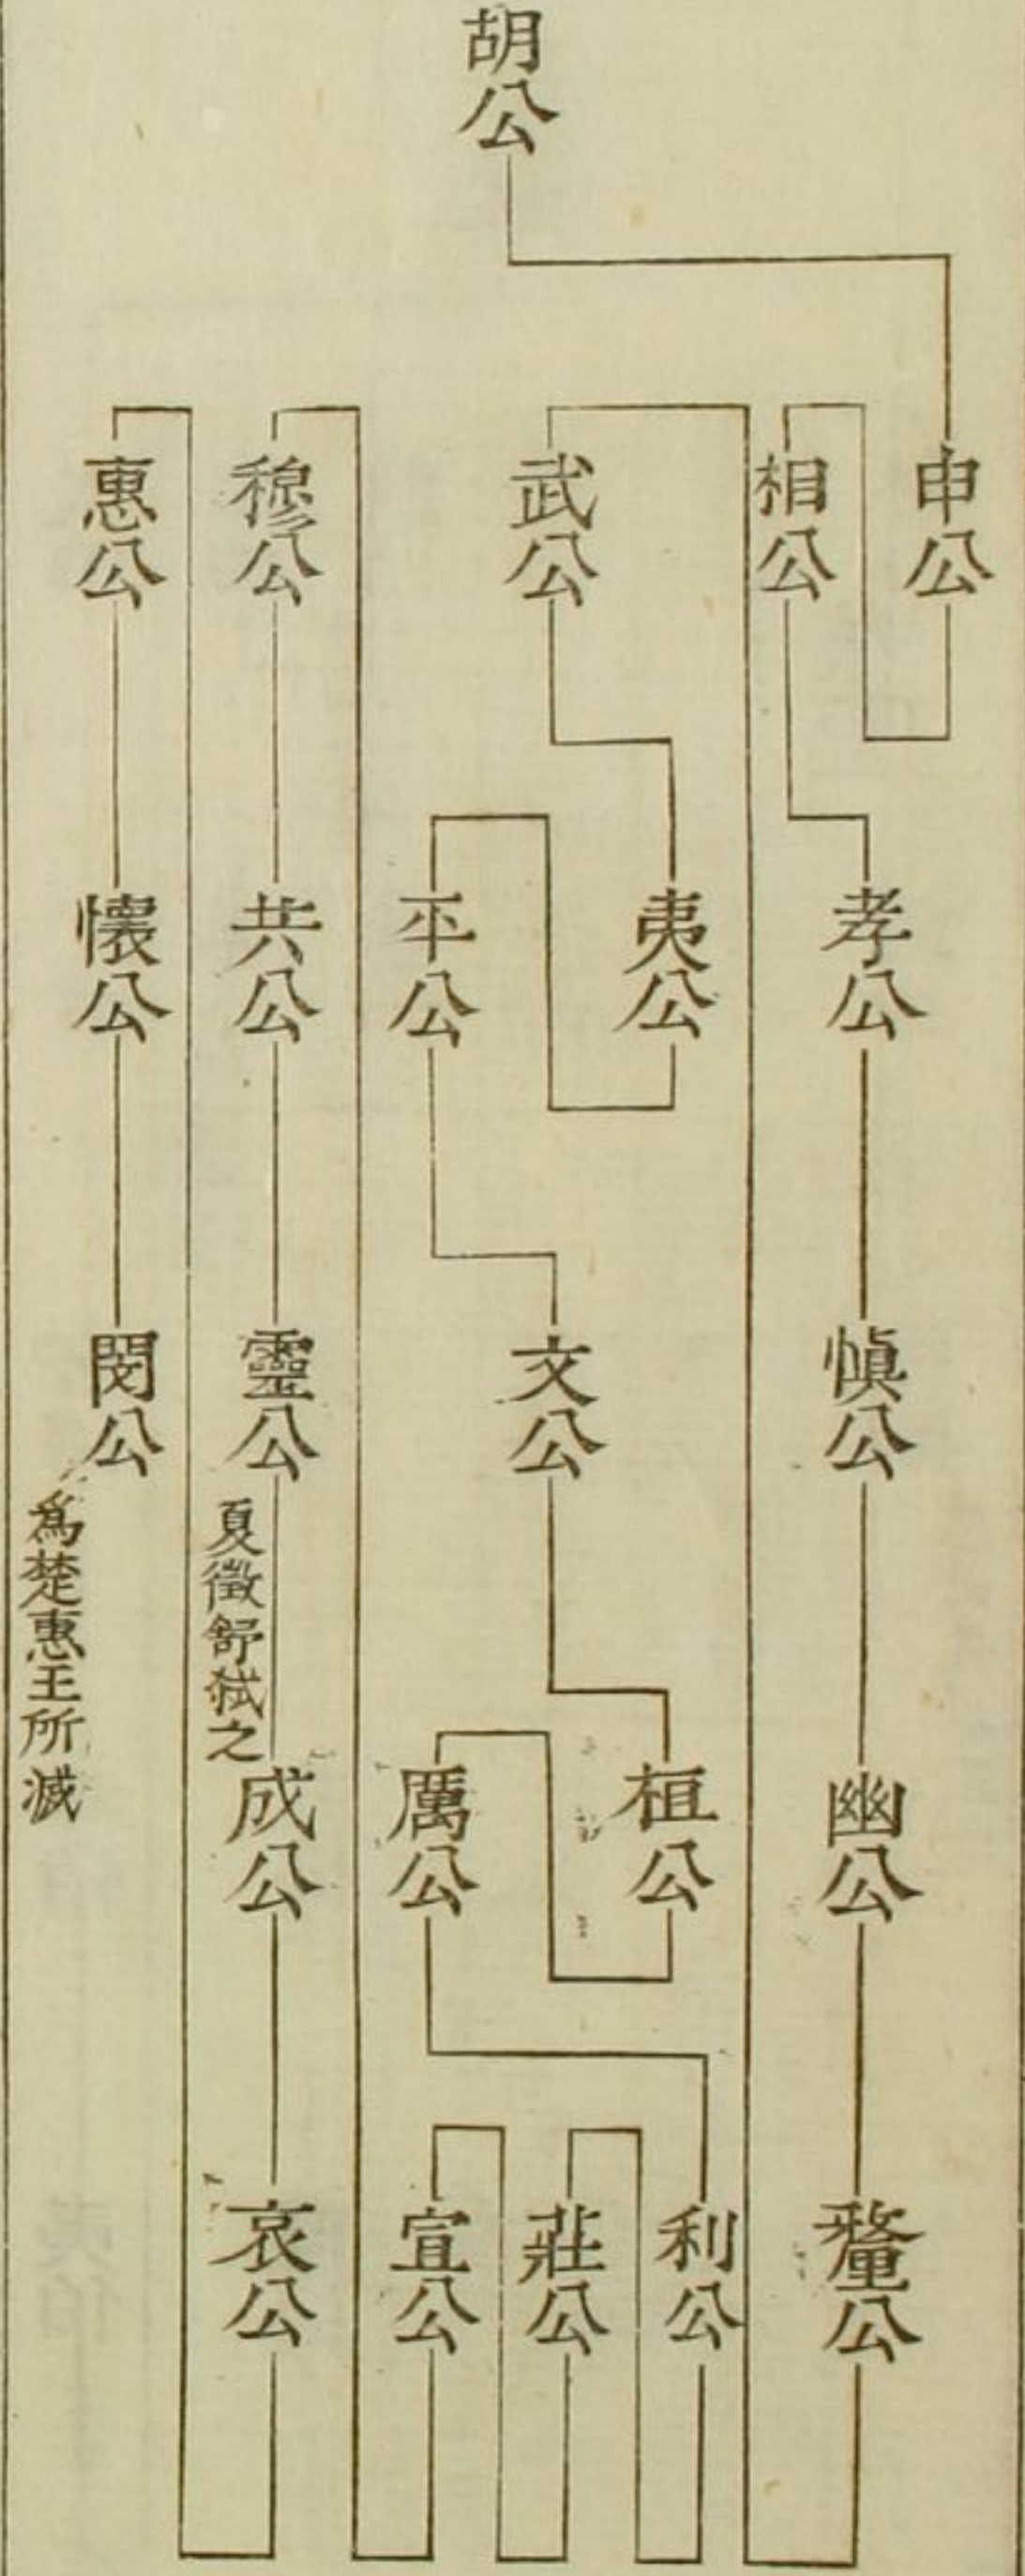 胡公
申公
相公
孝公
慎公
幽公
釐公
武公
夷公
平公
文公
桓公
厲公
利公
莊公
宣公
穆公
共公
靈公
夏徵舒弑之
成公
哀公
惠公
懷公
閔公
爲楚惠王所滅